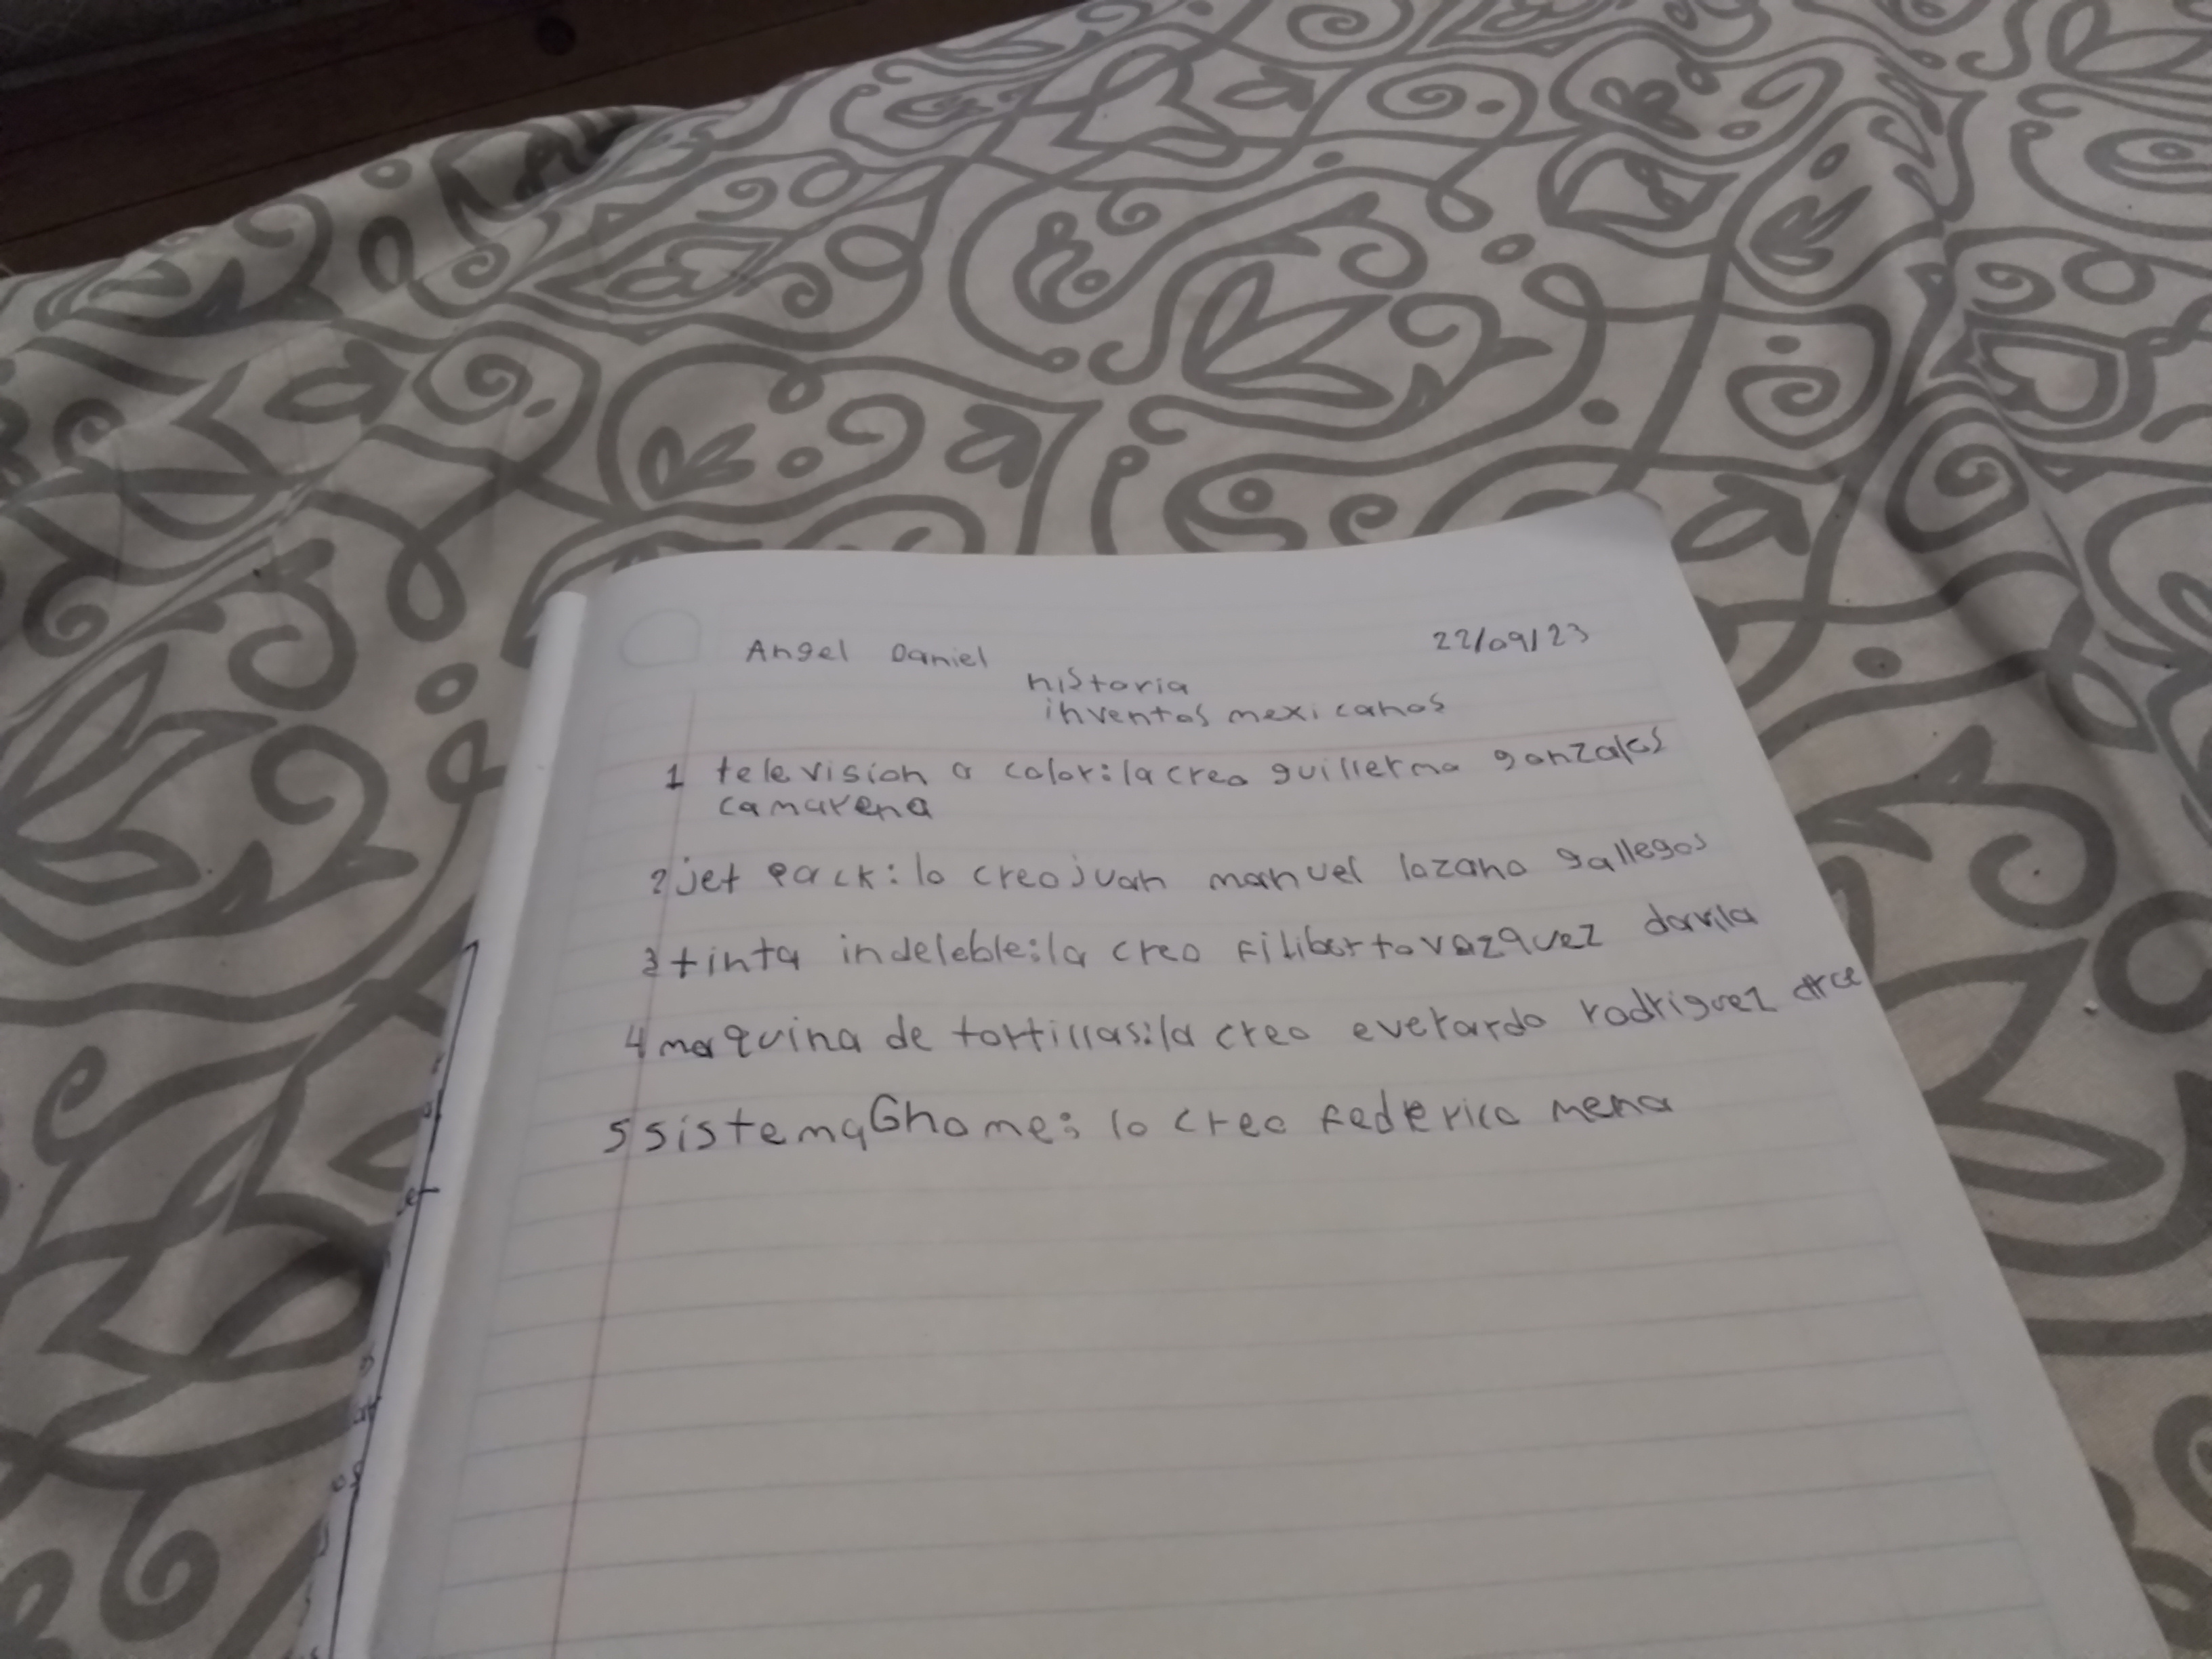 Angel Daniel 22/09/23
historia
inventos mexicanos
1 television a color: la creo guillermo gonzales
camarena
2 jet pack: lo creo juan manuel lozano gallegos
3 tinta indeleble: la creo filiberto vazquez davila
4 maquina de tortillas: la creo everardo rodriguez arce
5 sistema Ghome: lo creo federico mena